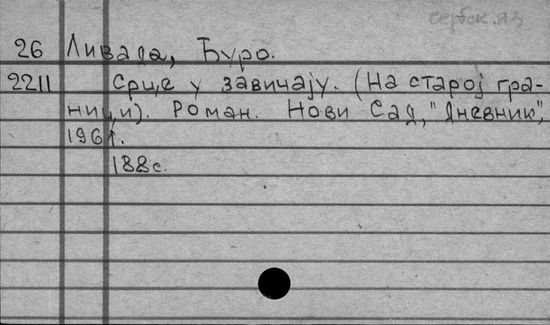 сербск. яз
26 Ливада, Ђуро.
2211 Срце у завичају. (На старој гра-
ници). Роман. Нови Сад, "Дневник",
1961.
188 с.